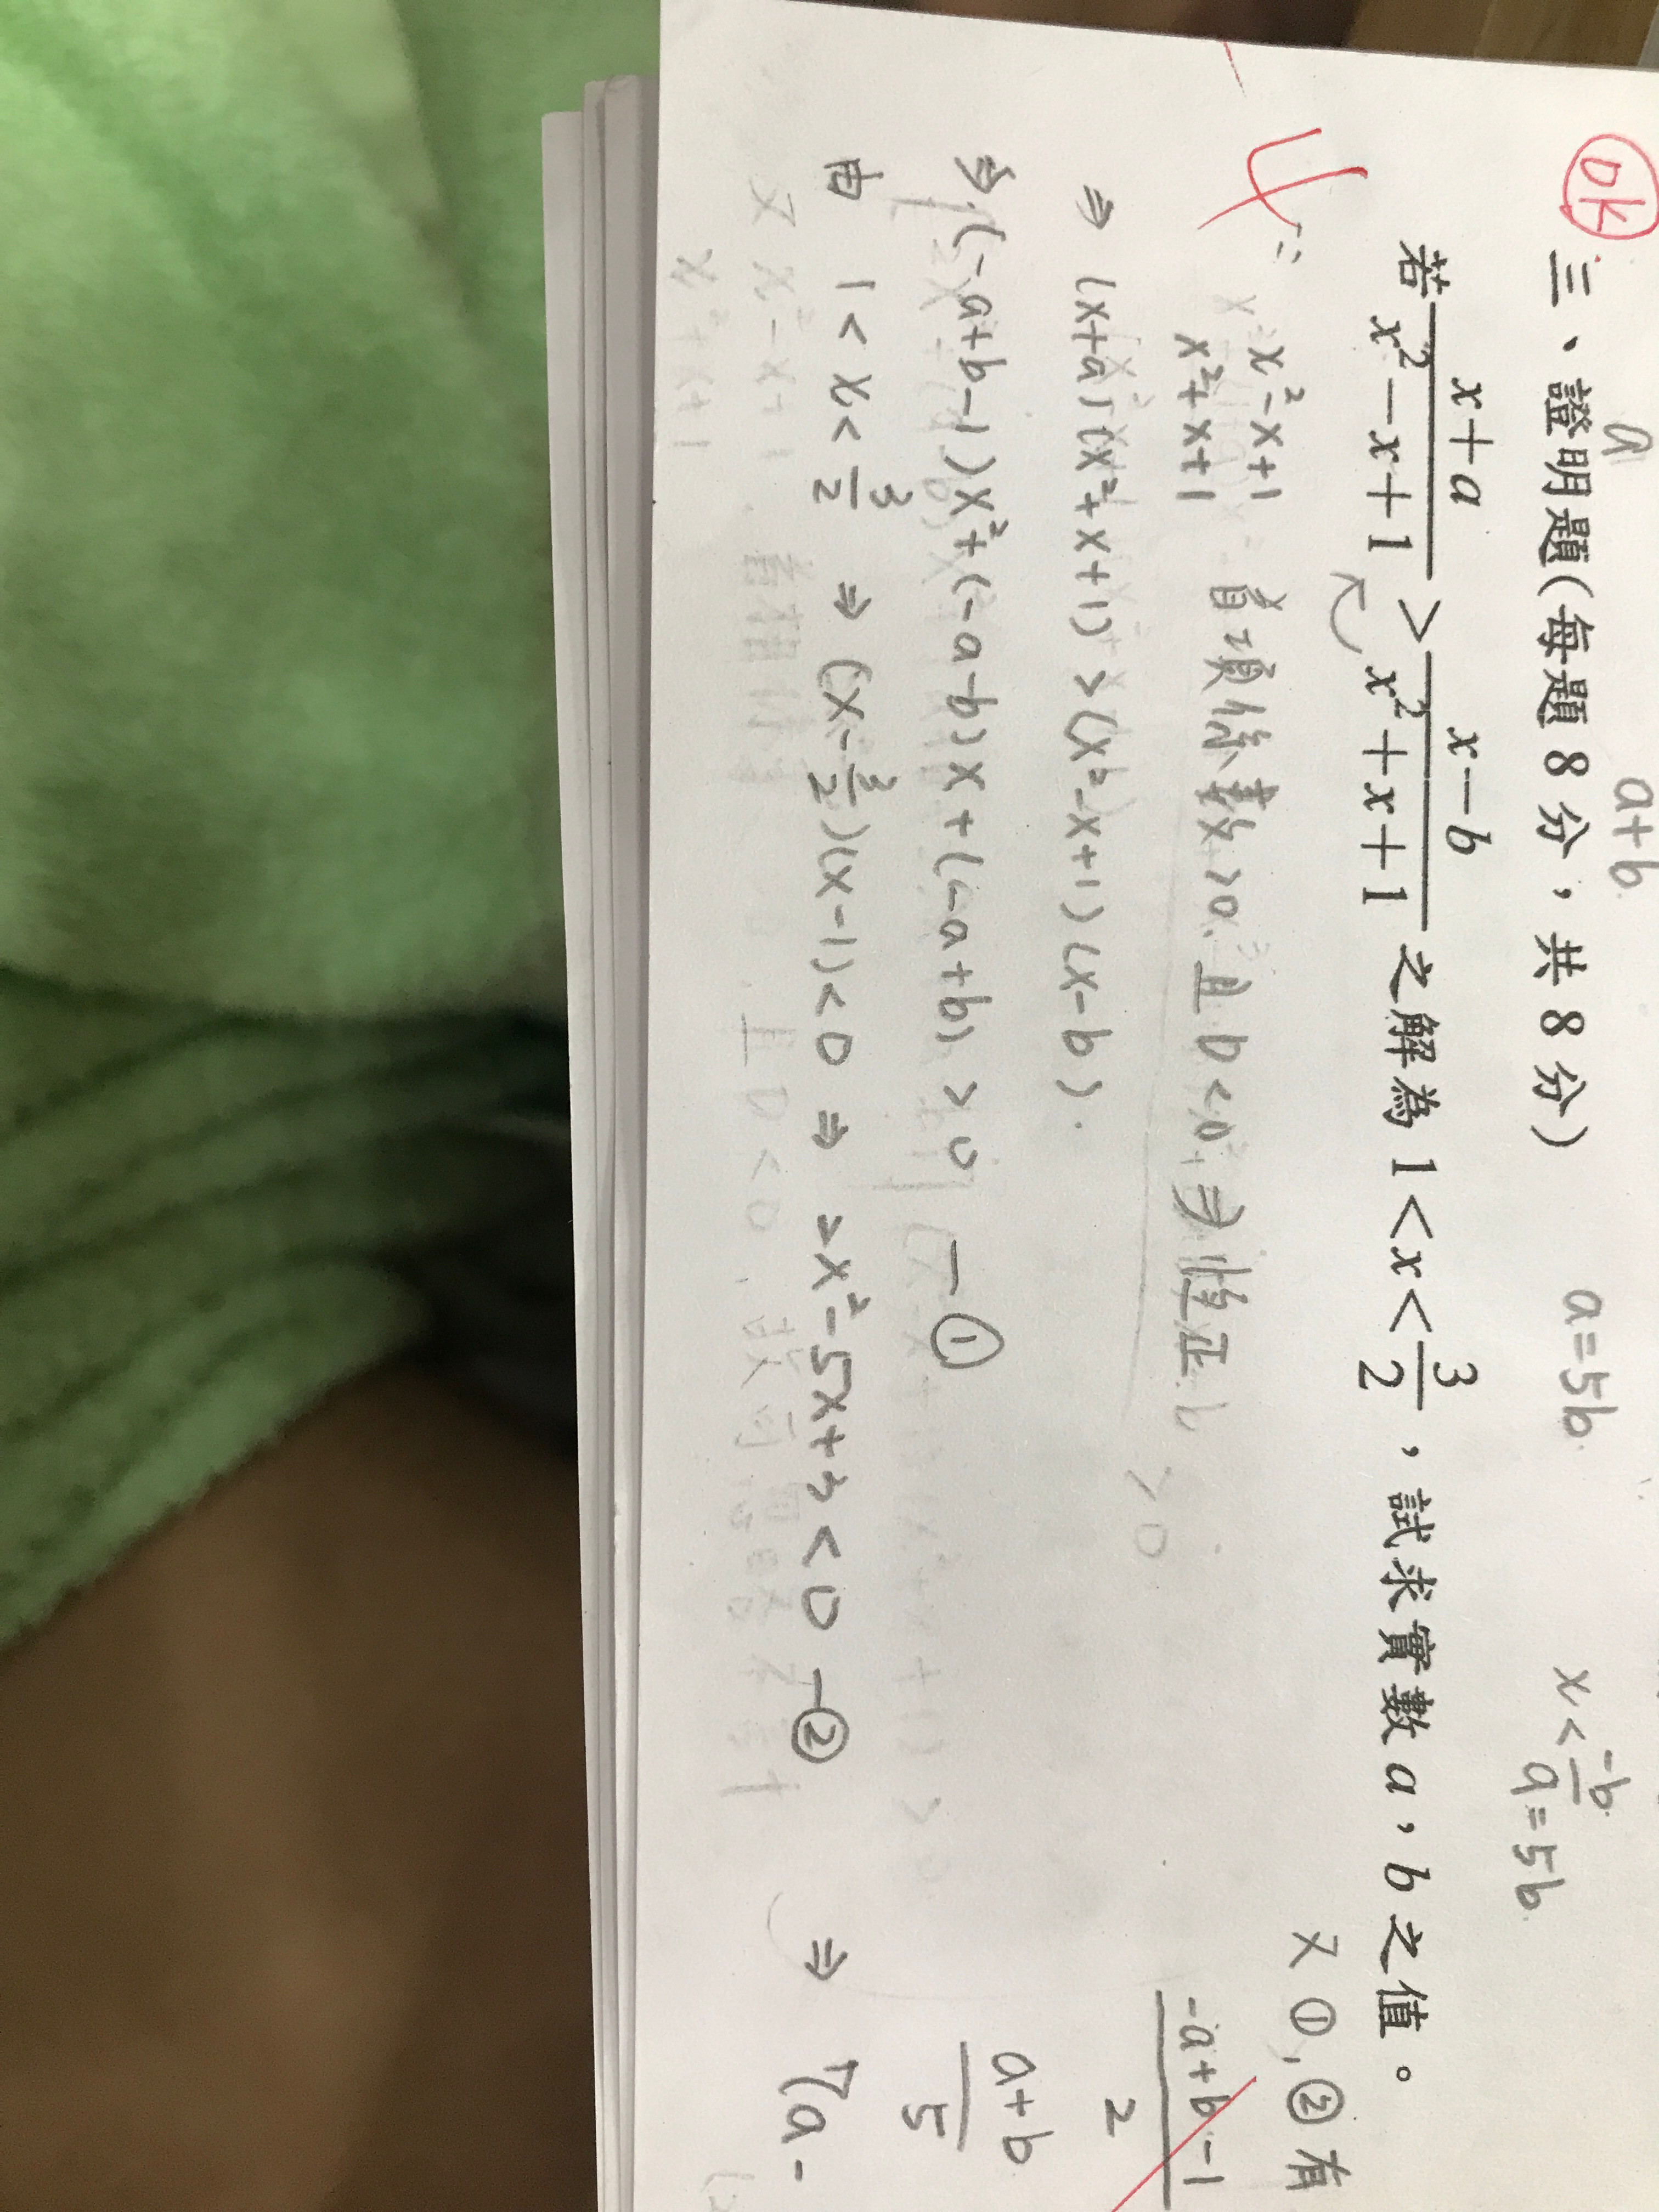 a
a+b
a=5b
x<-b/a=5b
ok
三、證明題(每題8分，共8分)
若 x+a/x²-x+1 > x-b/x²+x+1 之解為 1<x<3/2，試求實數a，b之值。
4
∵ x²-x+1
x²+x+1
首項係數>0，且D<0，
>0
⇒ (x+a)(x²+x+1)>(x²-x+1)(x-b)
⇒ (-a+b-1)x²+(-a-b)x+(-a+b)>0 —①
由 1<x<3/2 ⇒ (x-3/2)(x-1)<0 ⇒ 2x²-5x+3<0 —②
又①,②有
-a+b-1/2
a+b/5
⇒ 7a-